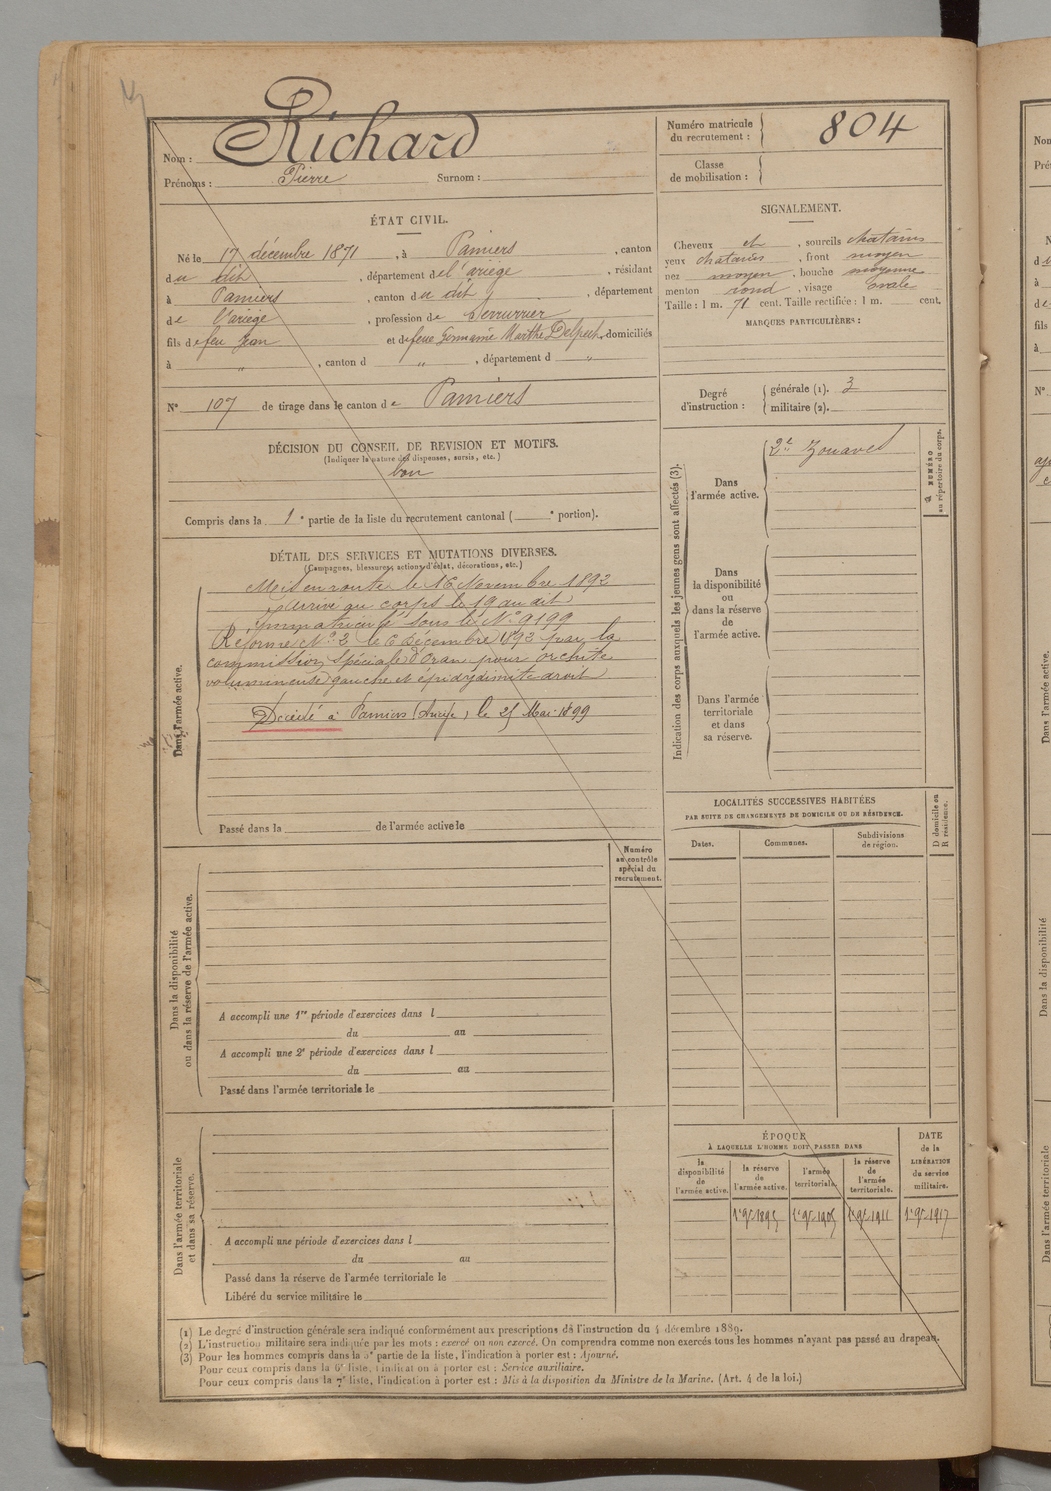 Nom : Richard
Prénoms : Pierre Surnom :
Numéro matricule du recrutement : 804
Classe de mobilisation :
ÉTAT CIVIL.
Né le 17 décembre 1871, à Pamiers, canton
du dit, département de l'ariège, résidant
à Pamiers, canton du dit, département
de l'ariège, profession de Serrurier
fils de feu Jean et de feue Germaine Marthe Delpech, domiciliés
à „, canton d „, département d „
N° 107 de tirage dans le canton de Pamiers
SIGNALEMENT.
Cheveux et, sourcils chatains
yeux chatains, front moyen
nez moyen, bouche moyenne
menton rond, visage ovale
Taille : 1 m. 71 cent. Taille rectifiée : 1 m. cent.
MARQUES PARTICULIÈRES :
Degré d'instruction : générale (1). 3
militaire (2).
DÉCISION DU CONSEIL DE REVISION ET MOTIFS.
(Indiquer la nature des dispenses, sursis, etc.)
bon
Compris dans la 1e partie de la liste du recrutement cantonal ( e portion).
DÉTAIL DES SERVICES ET MUTATIONS DIVERSES.
(Campagnes, blessures, actions d'éclat, décorations, etc.)
Dans l'armée active.
Mis en route le 16 Novembre 1892
Arrivé au corps le 19 au dit
immatriculé sous le N° 9199
Réformé N° 2 le 6 décembre 1892 par la
commission spéciale d'Oran pour orchite
volumineuse gauche et épidydimite droit
Décédé à Pamiers (Ariège) le 25 Mai 1899
Passé dans la de l'armée active le
Indication des corps auxquels les jeunes gens sont affectés (3).
Dans l'armée active.
2e Zouaves
NUMÉRO au répertoire du corps.
Dans la disponibilité ou dans la réserve de l'armée active.
Dans l'armée territoriale et dans sa réserve.
LOCALITÉS SUCCESSIVES HABITÉES
PAR SUITE DE CHANGEMENTS DE DOMICILE OU DE RÉSIDENCE.
Dates.
Communes.
Subdivisions de région.
D domicile ou R résidence.
Numéro au contrôle spécial du recrutement.
Dans la disponibilité ou dans la réserve de l'armée active.
A accompli une 1re période d'exercices dans l
du au
A accompli une 2e période d'exercices dans l
du au
Passé dans l'armée territoriale le
Dans l'armée territoriale et dans sa réserve.
A accompli une période d'exercices dans l
du au
Passé dans la réserve de l'armée territoriale le
Libéré du service militaire le
ÉPOQUE
À LAQUELLE L'HOMME DOIT PASSER DANS
la disponibilité de l'armée active.
la réserve de l'armée active.
l'armée territoriale.
la réserve de l'armée territoriale.
DATE de la LIBÉRATION du service militaire.
1er 9bre 1895 1er 9bre 1905 1er 9bre 1911 1er 9bre 1917
(1) Le degré d'instruction générale sera indiqué conformément aux prescriptions de l'instruction du 4 décembre 1889.
(2) L'instruction militaire sera indiquée par les mots : exercé ou non exercé. On comprendra comme non exercés tous les hommes n'ayant pas passé au drapeau.
(3) Pour les hommes compris dans la 5e partie de la liste, l'indication à porter est : Ajourné.
Pour ceux compris dans la 6e liste, l'indication à porter est : Service auxiliaire.
Pour ceux compris dans la 7e liste, l'indication à porter est : Mis à la disposition du Ministre de la Marine. (Art. 4 de la loi.)